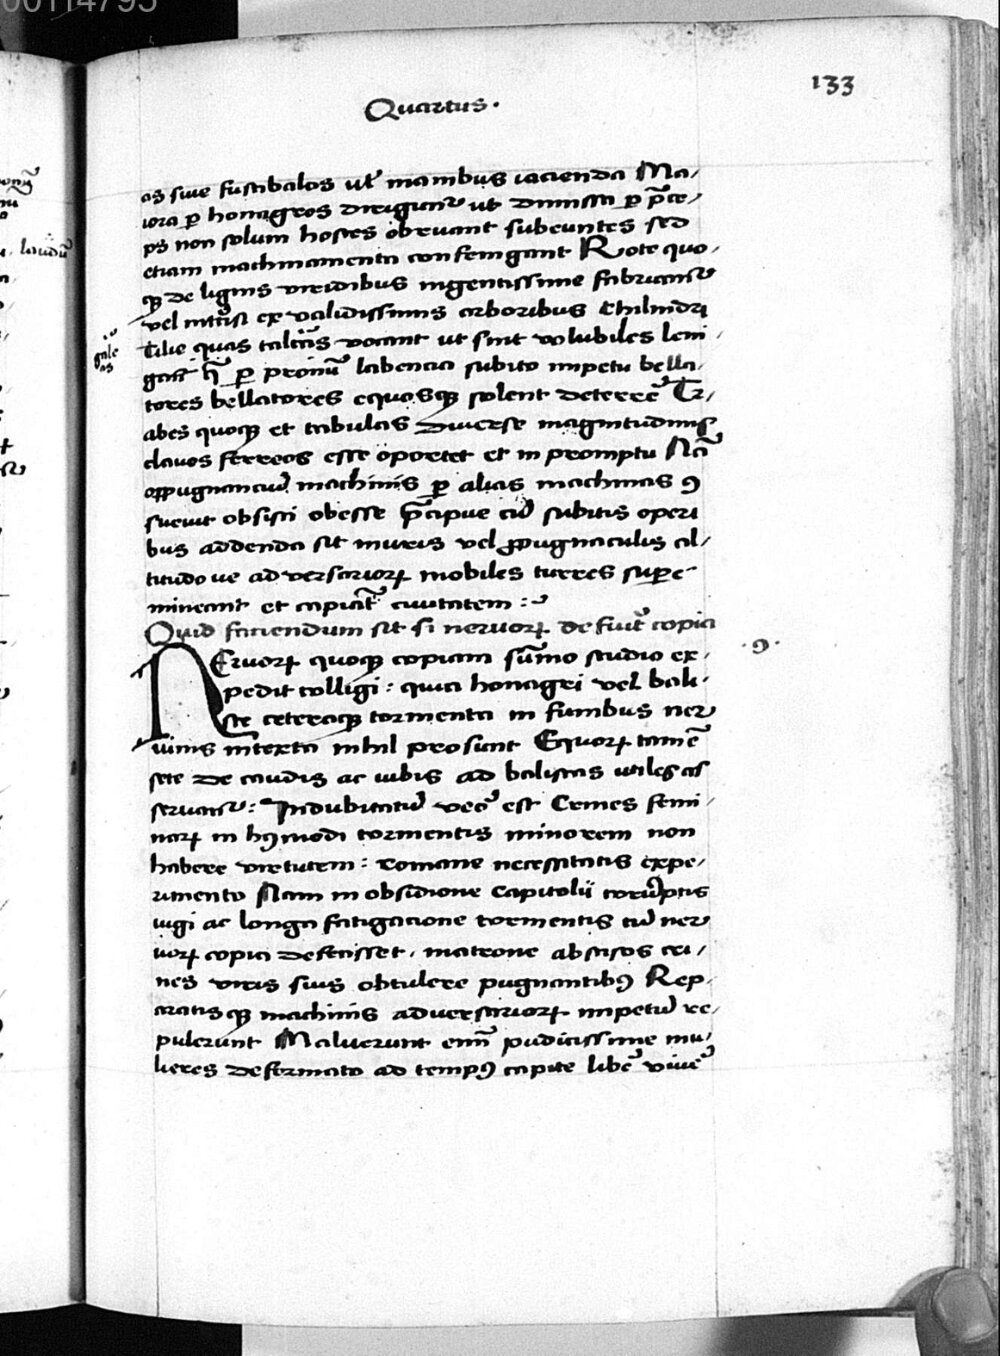 00114795
133
Quartus.
as siue fustibalos uel manibus iacienda Ma/
iora per honagros diriguntur ut dimissa per prece/
ps non solum hostes obruant subeuntes sed
etiam machinamenta confringant Rote quo/
que de lignis viridibus ingentissime fabricantur
vel intercisi ex validissimis arboribus Chilindri
quas taleas vocant ut sint volubiles leui
gantur hec per pronum labencia subito impetu bella/
tores bellatores equosque solent deterrere Tr/
abes quoque et tabulas diuerse magnitudinis
clauos ferreos esse oportet et in promptu Nam
oppugnancium machinis per alias machinas con
sueuit obsisti obesse precipue cum subitis operi
bus addenda sit muris vel propugnaculis al/
titudo ne aduersariorum mobiles turres supere
mineant et capiant ciuitatem :~
Quid faciendum sit si neruorum defuerit copia
NEruorum quoque copiam summo studio ex/
pedit colligi : quia honagri vel bali/
ste ceteraque tormenta in funibus ner
uinis intexta nihil prosunt Equorum tamen
sete de caudis ac iubis ad balistas utiles as
seruantur : Indubitatum vero est Crines femi/
narum in huiusmodi tormentis minorem non
habere virtutem : romane necessitatis expe/
rimento Nam in obsidione Capitolii corruptis
iugi ac longa fatigacione tormentis cum ner
uorum copia defecisset . matrone abscisos cri/
nes viris suis obtulere pugnantibus Rep/
aratisque machinis aduersariorum impetum re/
pulerunt Maluerunt enim pudicissime mu/
lieres deformato ad tempus capite libere viuere